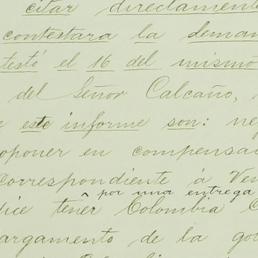 citar directamente
contestara la deman
testó el 16 del mismo
del Señor Calcaño,
este informe son: ne
oponer en compensa
correspondiente á Ven
por una entrega
dice tener Colombia C
argamento de la go